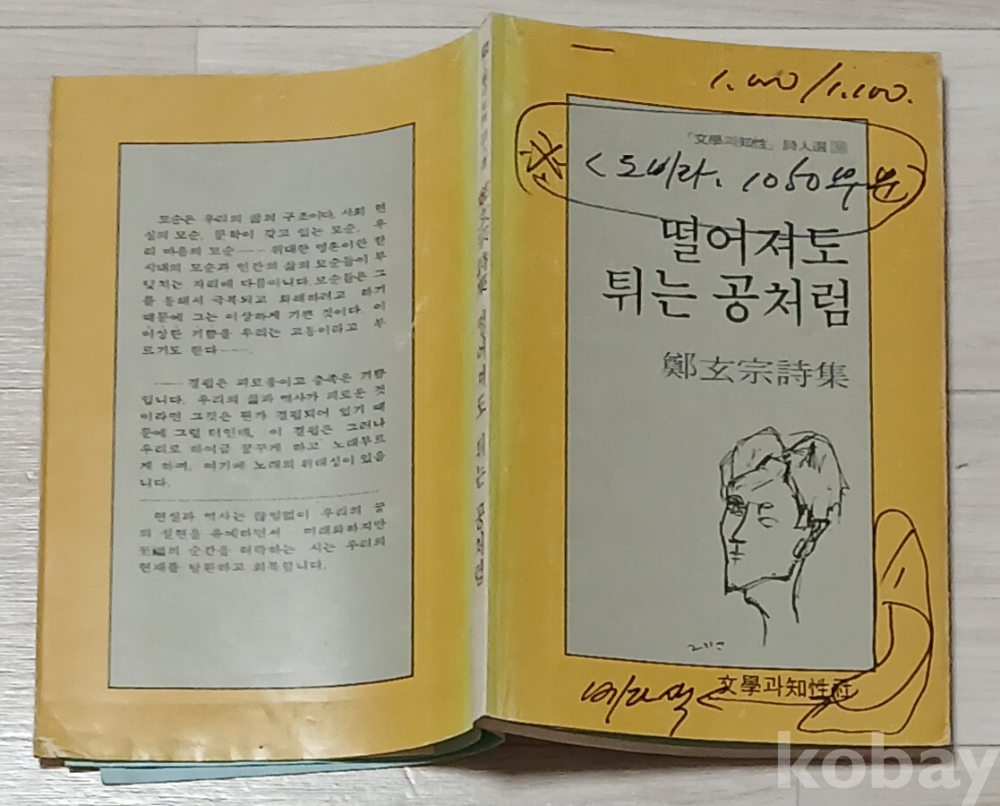 1.000/1.100.
「文學과知性」詩人選
<도비라. 1050부
떨어져도
튀는 공처럼
鄭玄宗詩集
文學과知性社
떨어져도 튀는 공처럼
모순은 우리의 삶의 구조이다. 사회 현
실의 모순, 문학이 갖고 있는 모순, 우
리 마음의 모순 —— 위대한 영혼이란 한
시대의 모순과 인간의 삶의 모순들이 부
딪치는 자리에 다름아니다. 모순들은 그
를 통해서 극복되고 화해하려고 하기
때문에 그는 이상하게 기쁜 것이다. 이
이상한 기쁨을 우리는 고통이라고 부
르기도 한다 ——.
—— 결핍은 괴로움이고 충족은 기쁨
입니다. 우리의 삶과 역사가 괴로운 것
이라면 그것은 뭔가 결핍되어 있기 때
문에 그럴 터인데, 이 결핍은 그러나
우리로 하여금 꿈꾸게 하고 노래부르
게 하며, 여기에 노래의 위대성이 있습
니다.
현실과 역사는 끊임없이 우리의 꿈
의 실현을 유예하면서 미래화하지만
至福의 순간을 허락하는 시는 우리의
현재를 탈환하고 회복합니다.
kobay